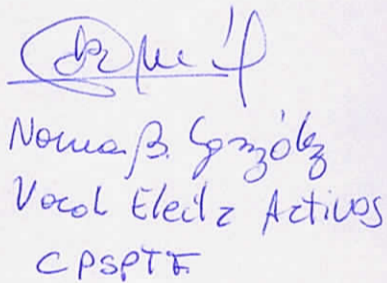 Norma B. González
Vocal Electa Activos
CPSPTF